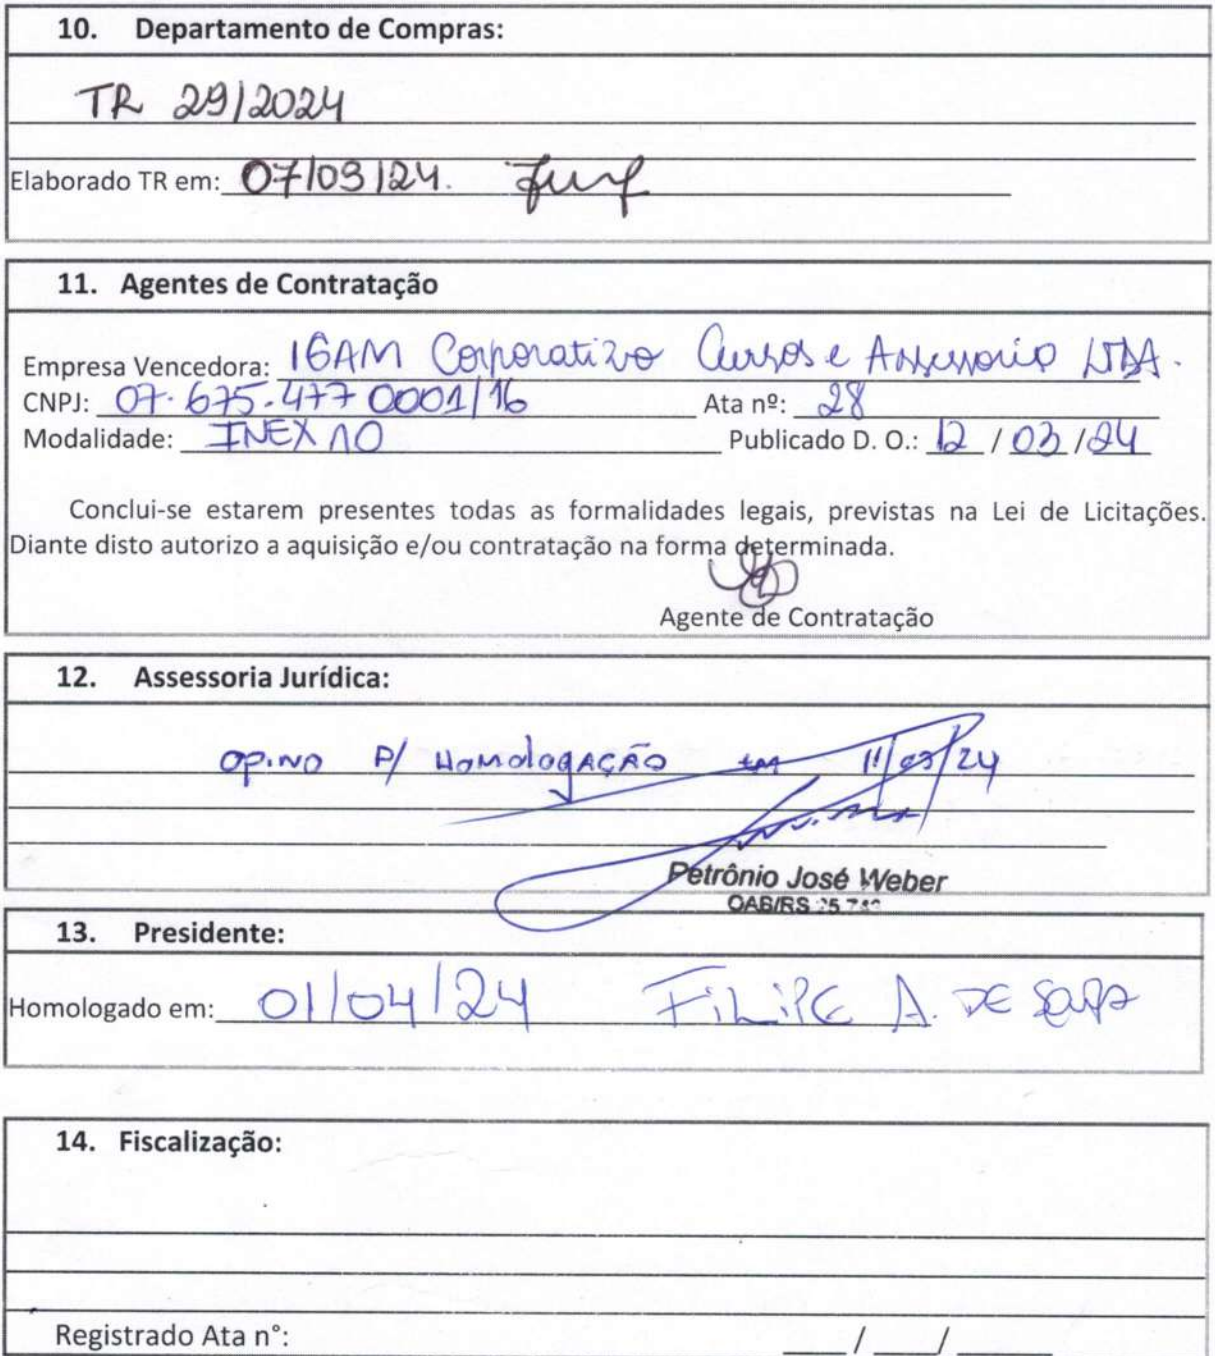 10. Departamento de Compras:
TR 29/2024
Elaborado TR em: 07/03/24.
11. Agentes de Contratação
Empresa Vencedora: IGAM Corporativo Cursos e Assessoria LTDA.
CNPJ: 07.675.477 0001/16 Ata nº: 28
Modalidade: INEX 10 Publicado D. O.: 12 / 03 / 24
Conclui-se estarem presentes todas as formalidades legais, previstas na Lei de Licitações.
Diante disto autorizo a aquisição e/ou contratação na forma determinada.
Agente de Contratação
12. Assessoria Jurídica:
OPINO P/ HOMOLOGAÇÃO EM 11/03/24
Petrônio José Weber
OAB/RS
13. Presidente:
Homologado em: 01/04/24 FILIPE A. DE
14. Fiscalização:
Registrado Ata n°: ___/___/_____